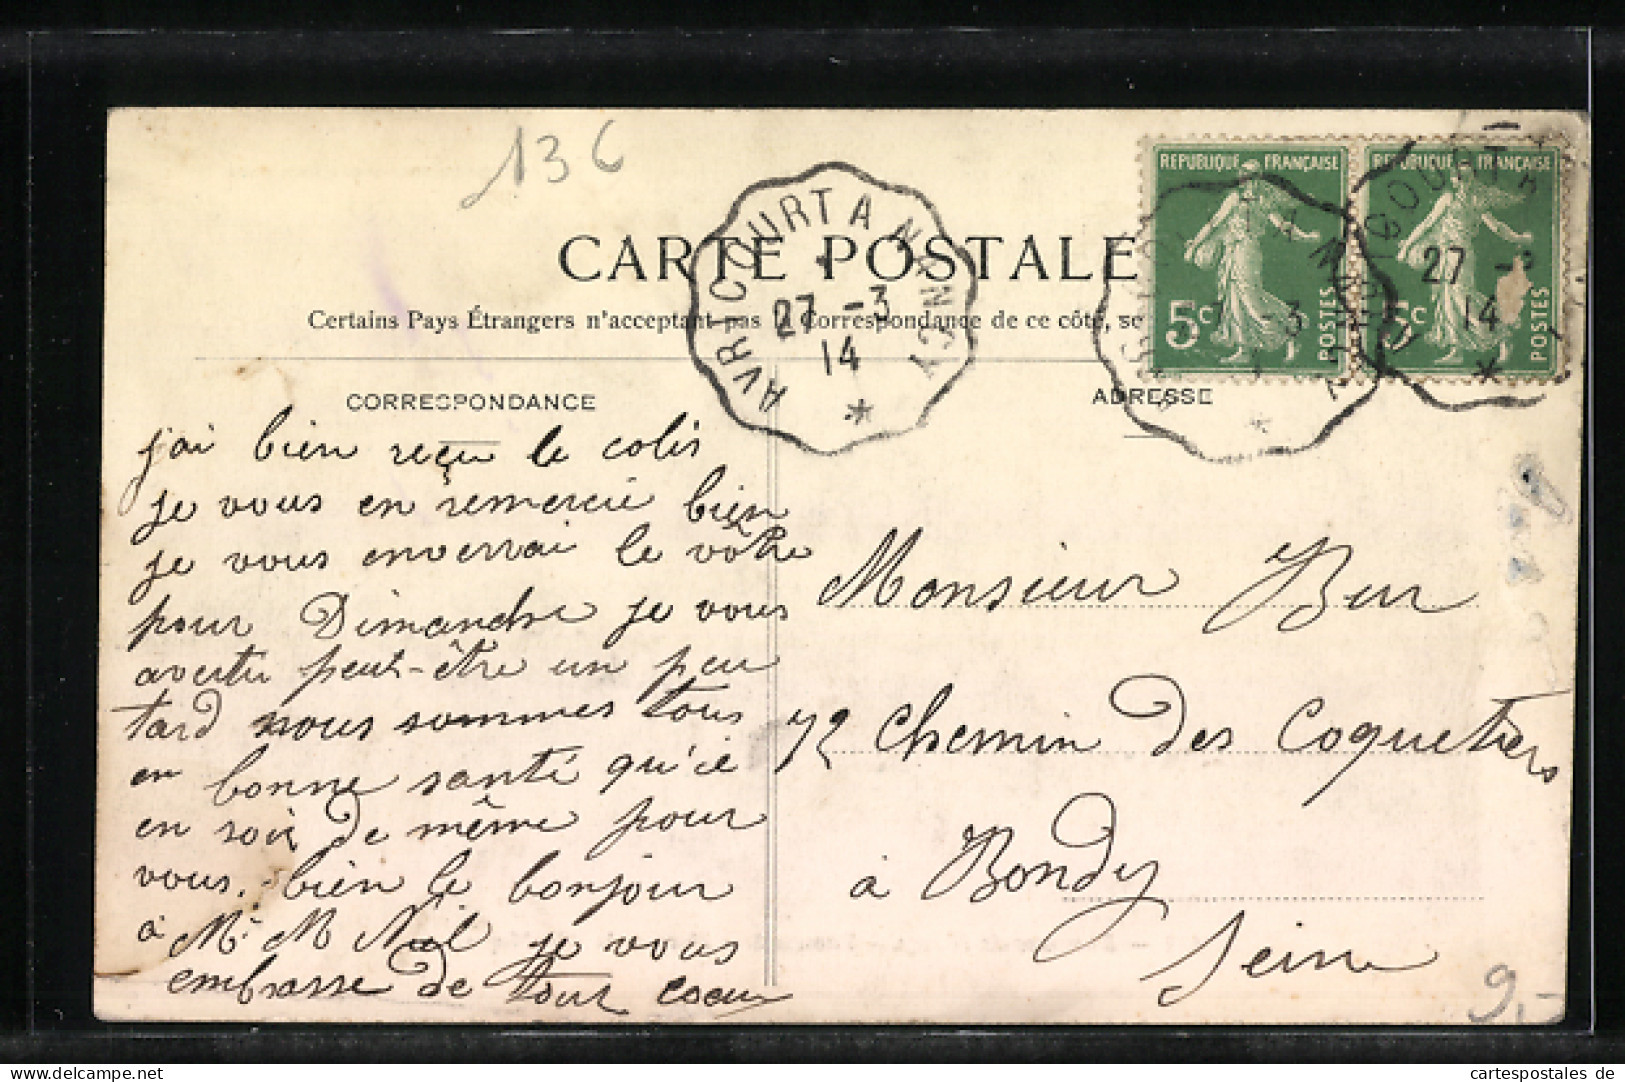 136
REPUBLIQUE FRANÇAISE
REPUBLIQUE FRANÇAISE
5c POSTES
5c POSTES
AVRICOURT A NANCY
27 -3
14
CARTE POSTALE
Certains Pays Étrangers n'acceptant pas la Correspondance de ce côté, se
CORRESPONDANCE
ADRESSE
j'ai bien reçu le colis
je vous en remercie bien
je vous enverrai le vôtre
pour Dimanche je vous
avertir peut-être un peu
tard nous sommes tous
en bonne santé qu'il
en soit de même pour
vous. bien le bonjour
à Mr M Noël je vous
embrasse de tout coeur
Monsieur Bur
72 Chemin des Coquetiers
à Bondy
Seine
9,-
cartespostales de
cartespostales de